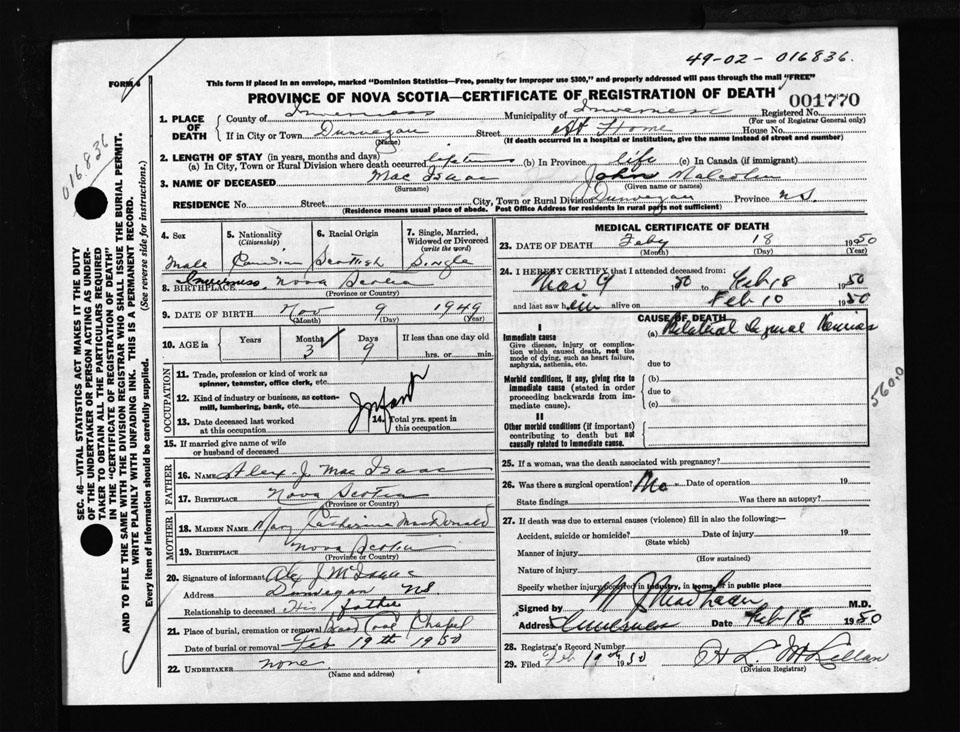 49-02-016836.
FORM 4
This form if placed in an envelope, marked "Dominion Statistics—Free, penalty for improper use $300," and properly addressed will pass through the mail "FREE"
PROVINCE OF NOVA SCOTIA—CERTIFICATE OF REGISTRATION OF DEATH
001770
016836
SEC. 46—VITAL STATISTICS ACT MAKES IT THE DUTY
OF THE UNDERTAKER OR PERSON ACTING AS UNDER-
TAKER TO OBTAIN ALL THE PARTICULARS REQUIRED
IN THE "CERTIFICATE OF REGISTRATION OF DEATH"
AND TO FILE THE SAME WITH THE DIVISION REGISTRAR WHO SHALL ISSUE THE BURIAL PERMIT.
WRITE PLAINLY WITH UNFADING INK. THIS IS A PERMANENT RECORD.
Every item of information should be carefully supplied. (See reverse side for instructions.)
1. PLACE OF DEATH
County of Inverness Municipality of Inverness Registered No.
(For use of Registrar General only)
If in City or Town Dunvegan Street At Home House No.
(Name) (If death occurred in a hospital or institution, give the name instead of street and number)
2. LENGTH OF STAY (in years, months and days)
(a) In City, Town or Rural Division where death occurred lifetime (b) In Province life (c) In Canada (if immigrant)
3. NAME OF DECEASED Mac Isaac John Malcolm
(Surname) (Given name or names)
RESIDENCE No. Street City, Town or Rural Division Dunvegan Province N.S.
(Residence means usual place of abode. Post Office Address for residents in rural parts not sufficient)
4. Sex Male
5. Nationality (Citizenship) Canadian
6. Racial Origin Scottish
7. Single, Married, Widowed or Divorced (write the word) Single
8. BIRTHPLACE Inverness, Nova Scotia
(Province or Country)
9. DATE OF BIRTH Nov 9 1949
(Month) (Day) (Year)
10. AGE in Years Months 3 Days 9 If less than one day old
hrs. or min.
OCCUPATION
11. Trade, profession or kind of work as
spinner, teamster, office clerk, etc.
12. Kind of industry or business, as cotton-
mill, lumbering, bank, etc.
Infant
13. Date deceased last worked
at this occupation
14. Total yrs. spent in
this occupation
15. If married give name of wife
or husband of deceased
FATHER
16. NAME Alex J. Mac Isaac
17. BIRTHPLACE Nova Scotia
MOTHER
18. MAIDEN NAME Mary Catherine MacDonald
19. BIRTHPLACE Nova Scotia
(Province or Country)
20. Signature of informant Alex J McIsaac
Address Dunvegan N.S.
Relationship to deceased His father
21. Place of burial, cremation or removal Chapel
Date of burial or removal Feb 19th 1950
22. UNDERTAKER none
(Name and address)
MEDICAL CERTIFICATE OF DEATH
23. DATE OF DEATH Feby 18 1950
(Month) (Day) (Year)
24. I HEREBY CERTIFY that I attended deceased from:
Nov 9 1950 to Feb 18 1950
and last saw him alive on Feb 10 1950
CAUSE OF DEATH
I
Immediate cause
Give disease, injury or complica-
tion which caused death, not the
mode of dying, such as heart failure,
asphyxia, asthenia, etc.
(a) Bilateral Inguinal Hernias
due to
Morbid conditions, if any, giving rise to
immediate cause (stated in order
proceeding backwards from im-
mediate cause).
(b)
due to
(c)
560.0
II
Other morbid conditions (if important)
contributing to death but not
causally related to immediate cause.
25. If a woman, was the death associated with pregnancy?
26. Was there a surgical operation? No Date of operation 19
State findings Was there an autopsy?
27. If death was due to external causes (violence) fill in also the following:—
Accident, suicide or homicide? Date of injury 19
(State which)
Manner of injury
(How sustained)
Nature of injury
Specify whether injury occurred in industry, in home, or in public place
Signed by M.D.
Address Inverness Date Feb 18 1950
28. Registrar's Record Number
29. Filed Feb 19th 1950 H L. McLellan
(Division Registrar)